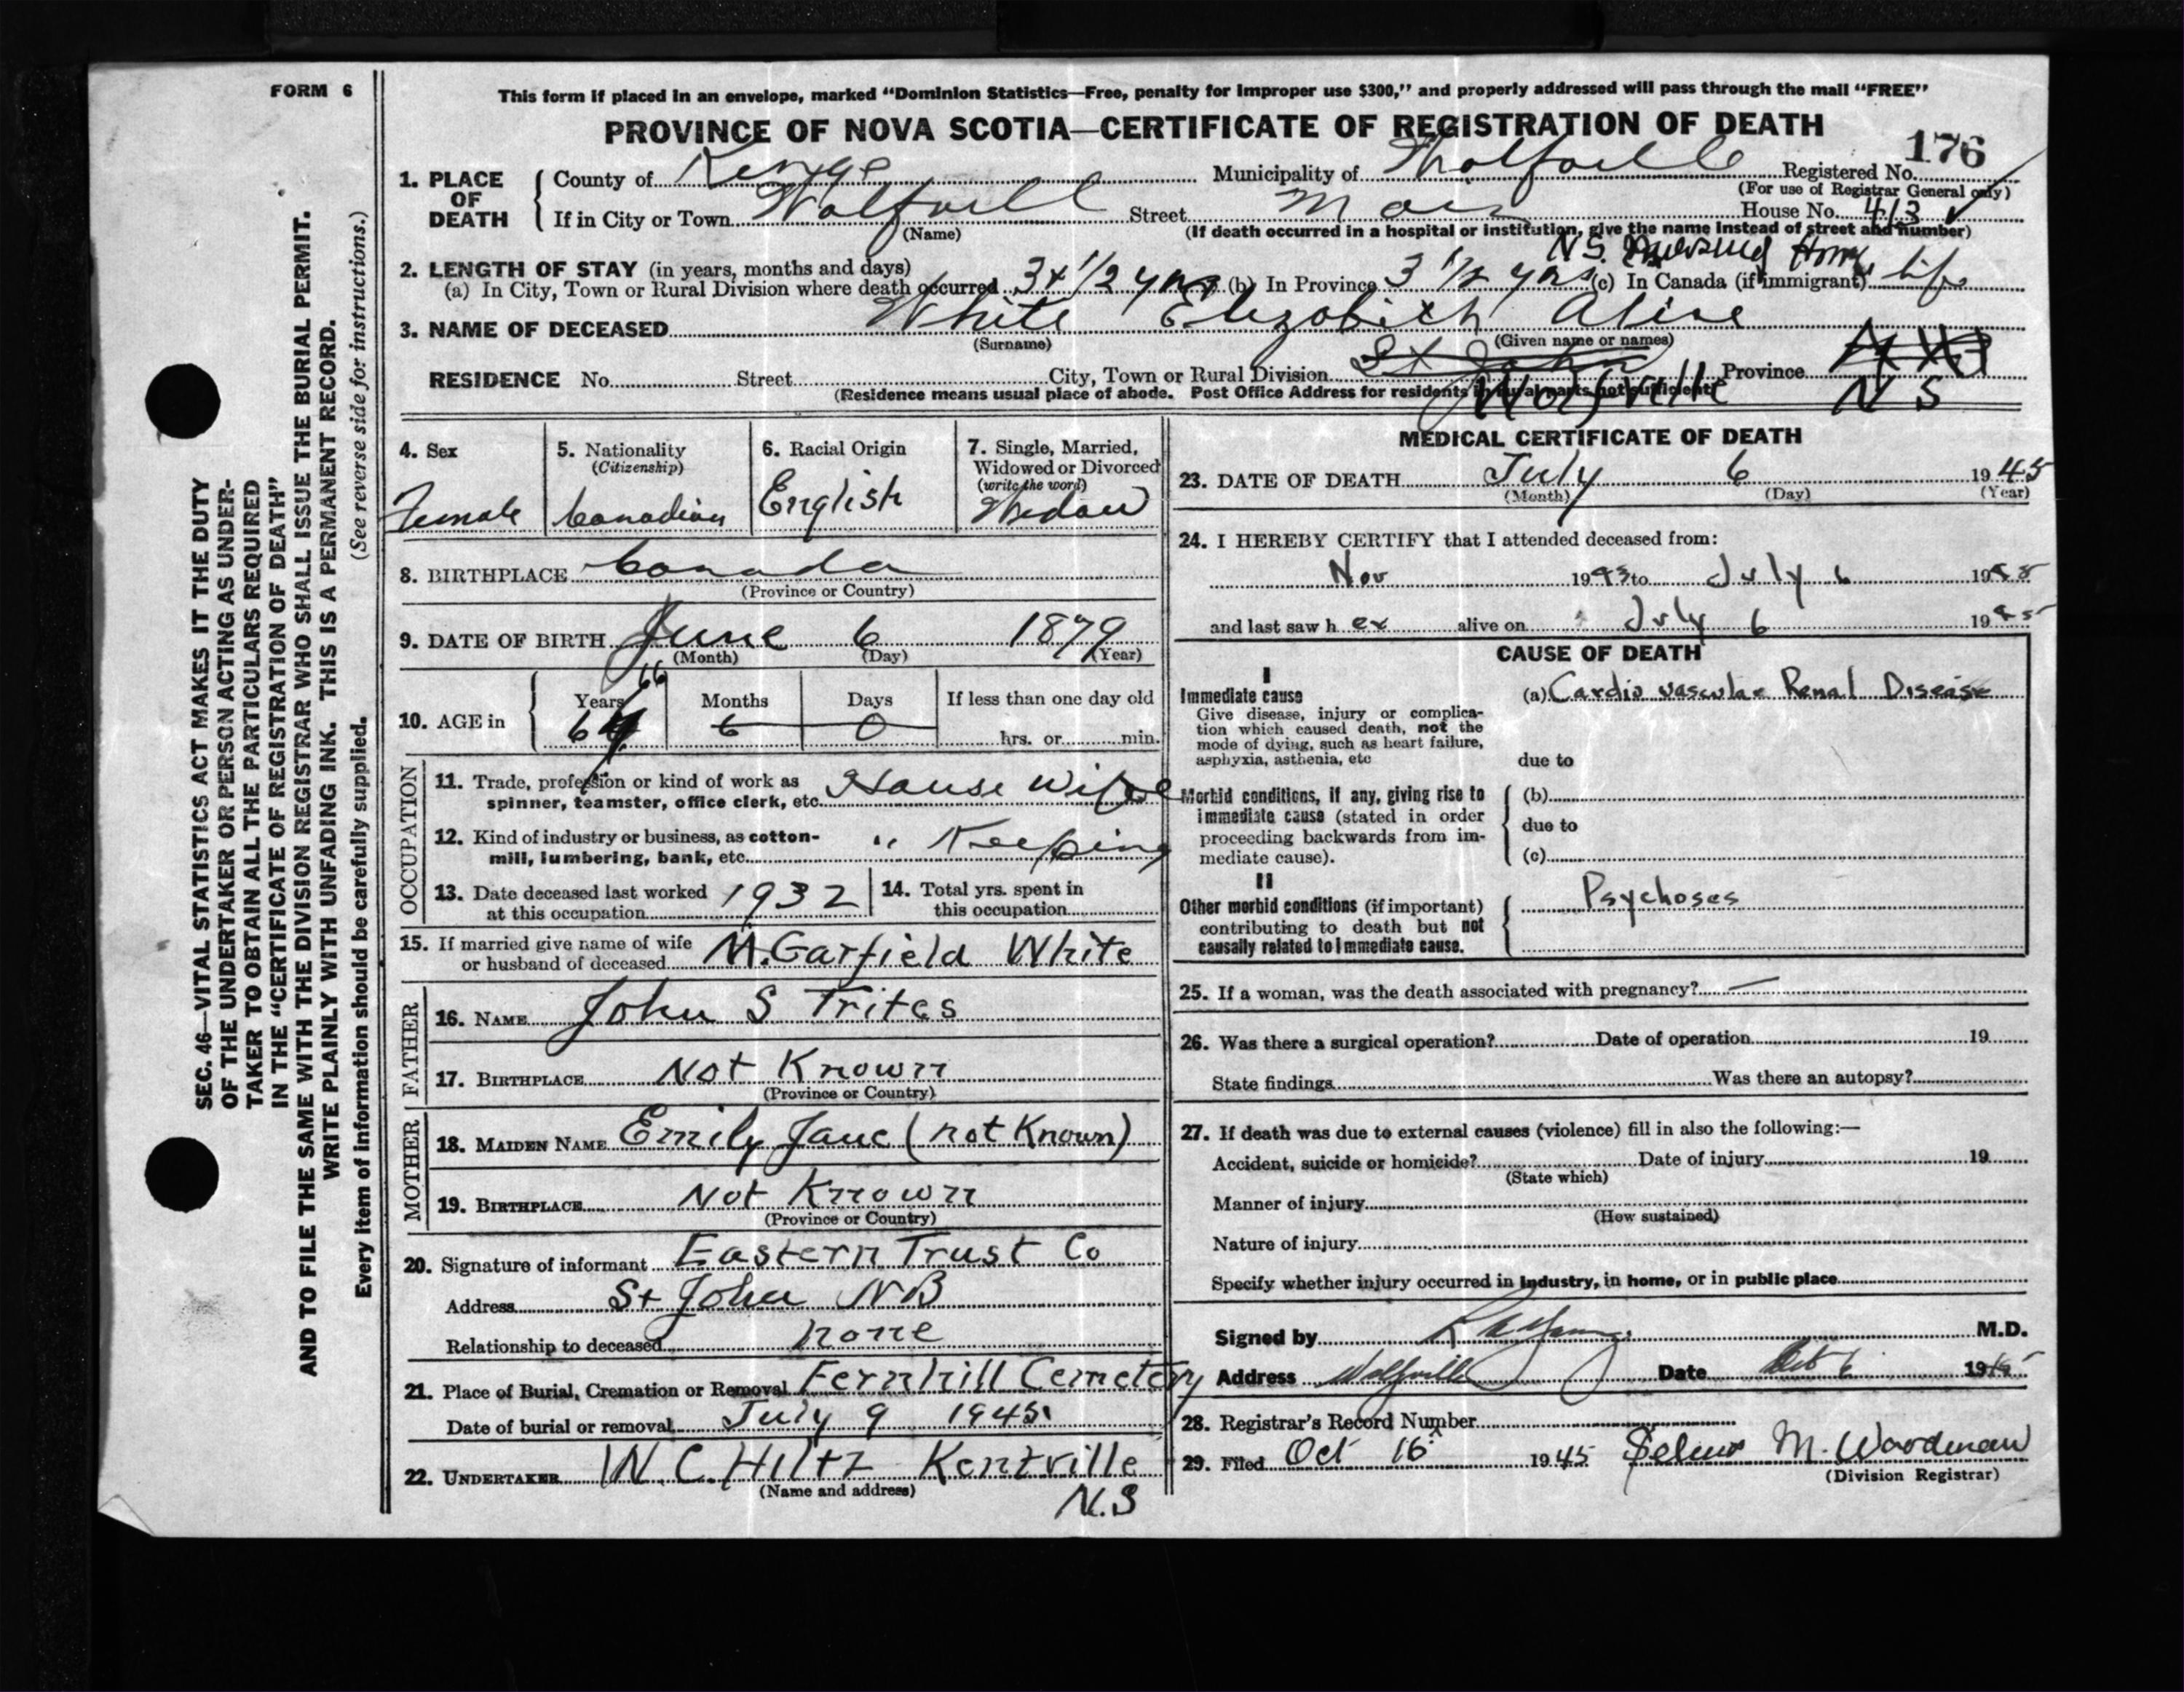 FORM 6
This form if placed in an envelope, marked “Dominion Statistics—Free, penalty for improper use $300,” and properly addressed will pass through the mail “FREE”
PROVINCE OF NOVA SCOTIA—CERTIFICATE OF REGISTRATION OF DEATH
176
1. PLACE OF DEATH
County of Kings Municipality of Wolfville Registered No.
(For use of Registrar General only)
If in City or Town Wolfville Street Main House No. 413
(Name) (If death occurred in a hospital or institution, give the name instead of street and number)
N.S. Nursing Home
2. LENGTH OF STAY (in years, months and days)
(a) In City, Town or Rural Division where death occurred 3 + 1/2 yrs (b) In Province 3 1/2 yrs (c) In Canada (if immigrant) life
3. NAME OF DECEASED White Elizabeth Alice
(Surname) (Given name or names)
RESIDENCE No. Street City, Town or Rural Division St John Province
Wolfville N S
(Residence means usual place of abode. Post Office Address for residents in rural parts not sufficient)
4. Sex
Female
5. Nationality
(Citizenship)
Canadian
6. Racial Origin
English
7. Single, Married,
Widowed or Divorced
(write the word)
Widow
8. BIRTHPLACE Canada
(Province or Country)
9. DATE OF BIRTH June 6 1879
(Month) (Day) (Year)
66
10. AGE in Years Months Days If less than one day old
6 0 hrs. or min.
OCCUPATION
11. Trade, profession or kind of work as
spinner, teamster, office clerk, etc. House Wife
12. Kind of industry or business, as cotton-
mill, lumbering, bank, etc. " Keeping
13. Date deceased last worked
at this occupation 1932
14. Total yrs. spent in
this occupation
15. If married give name of wife
or husband of deceased M. Garfield White
FATHER
16. NAME John S Trites
17. BIRTHPLACE Not Known
(Province or Country)
MOTHER
18. MAIDEN NAME Emily Jane (not Known)
19. BIRTHPLACE Not Known
(Province or Country)
20. Signature of informant Eastern Trust Co
Address St John NB
Relationship to deceased none
21. Place of Burial, Cremation or Removal Fernhill Cemetery
Date of burial or removal July 9 1945
22. UNDERTAKER W. C. Hiltz Kentville
(Name and address)
N.S
MEDICAL CERTIFICATE OF DEATH
23. DATE OF DEATH July 6 1945
(Month) (Day) (Year)
24. I HEREBY CERTIFY that I attended deceased from:
Nov 1943 to July 6 1945
and last saw her alive on July 6 1945
CAUSE OF DEATH
I
Immediate cause
Give disease, injury or complica-
tion which caused death, not the
mode of dying, such as heart failure,
asphyxia, asthenia, etc
(a) Cardio vascular Renal Disease
due to
Morbid conditions, if any, giving rise to
immediate cause (stated in order
proceeding backwards from im-
mediate cause).
(b)
due to
(c)
II
Other morbid conditions (if important)
contributing to death but not
causally related to immediate cause.
Psychoses
25. If a woman, was the death associated with pregnancy? —
26. Was there a surgical operation? Date of operation 19
State findings Was there an autopsy?
27. If death was due to external causes (violence) fill in also the following:—
Accident, suicide or homicide? Date of injury 19
(State which)
Manner of injury
(How sustained)
Nature of injury
Specify whether injury occurred in industry, in home, or in public place
Signed by M.D.
Address Wolfville Date Oct 6 1945
28. Registrar's Record Number
29. Filed Oct 16 1945 M. Woodman
(Division Registrar)
SEC. 46—VITAL STATISTICS ACT MAKES IT THE DUTY
OF THE UNDERTAKER OR PERSON ACTING AS UNDER-
TAKER TO OBTAIN ALL THE PARTICULARS REQUIRED
IN THE “CERTIFICATE OF REGISTRATION OF DEATH”
AND TO FILE THE SAME WITH THE DIVISION REGISTRAR WHO SHALL ISSUE THE BURIAL PERMIT.
WRITE PLAINLY WITH UNFADING INK. THIS IS A PERMANENT RECORD.
Every item of information should be carefully supplied. (See reverse side for instructions.)